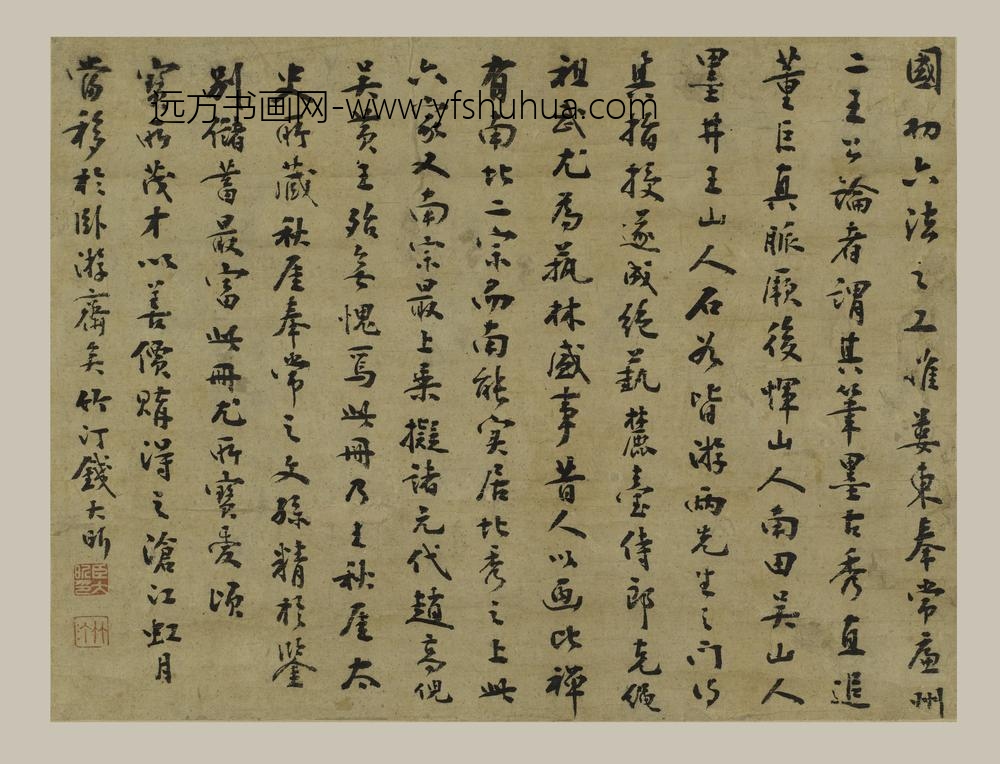 國初六法之工惟婁東奉常廉州
二王公論者謂其筆墨古秀直追
董巨真脈厥後惲山人南田吳山人
墨井王山人石谷皆游兩先生之門得
其指授遂成絕藝麓臺侍郎克繩
祖武尤為蓺林盛事昔人以画比禪
有南北二宗而南能實居北秀之上此
六家又南宗最上乘擬諸元代趙高倪
吳黃王殆無愧焉此冊乃王秋厓太
史所藏秋厓奉常之文孫精於鑒
別儲蓄最富此冊尤所寶愛頃
所茂才以善價購得之滄江虹月
當移於臥游齋矣竹汀錢大昕
臣大昕
竹汀
远方书画网-www.yfshuhua.com